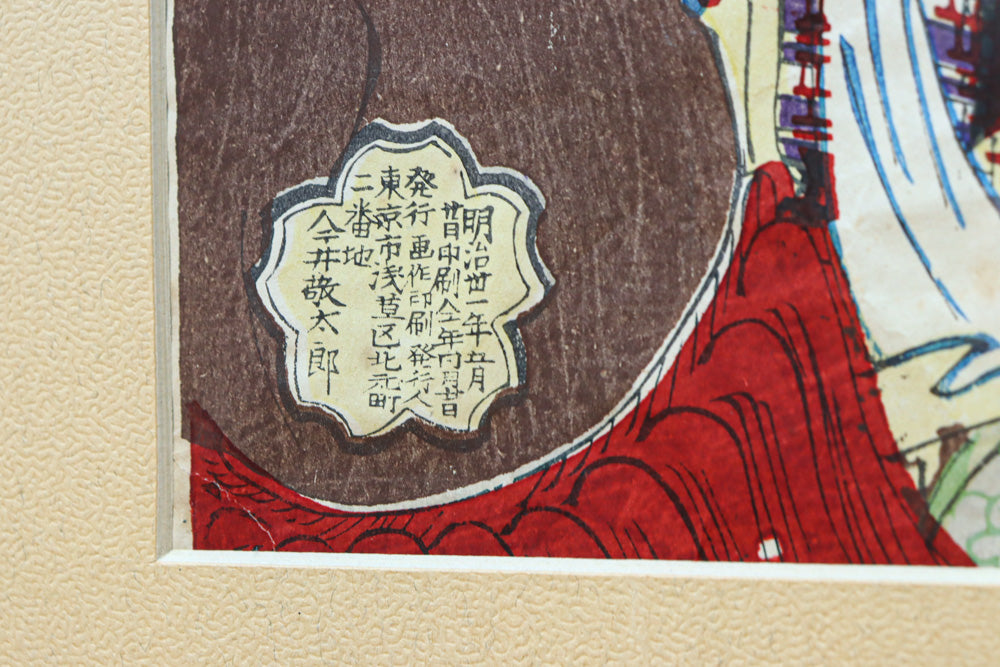 明治丗一年五月
廿日印刷仝年同月廿日
発行画作印刷発行人
東京市浅草区北元町
二番地
今井敬太郎